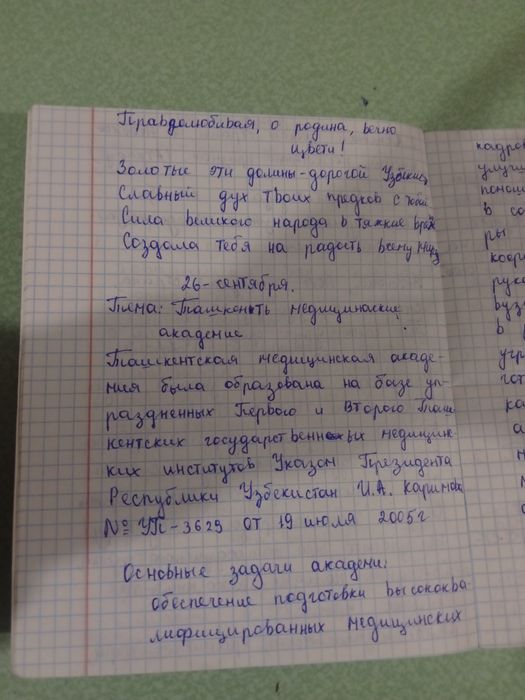 Правдолюбивая, о родина, вечно
цвети!
Золотые эти долины - дорогой Узбекис
Славный дух твоих предков с тобой
Сила великого народа в тяжкие вре
Создала тебя на радость всему миру
26-сентября.
Тема: Ташкенть медицинские
академие
Ташкентская медицинская акаде-
мия была образована на базе уп-
раздненных Первого и Второго Таш
кентских государственных медицин
ких институтов Указом Президента
Республики Узбекистан И.А. Каримова
№ УП-3629 от 19 июля 2005г
Основные задачи академи:
обеспечение подготовки высококва
лифицированных медицинских
кадров
улучш
помощ
в со
ры
коор
руко
вузо
в
учр
гот
ка
а